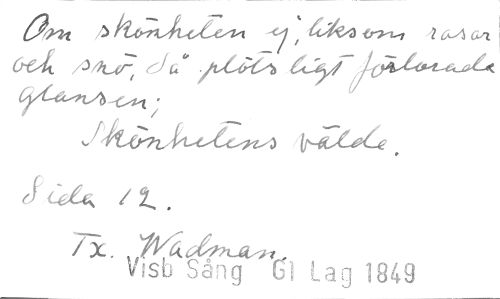 Om skönheten ej, liksom rasar
och snö, så plötsligt förlorade
glansen;
Skönhetens välde.
Sida 12.
Tx. Wadman.
Visb Sång Gl Lag 1849